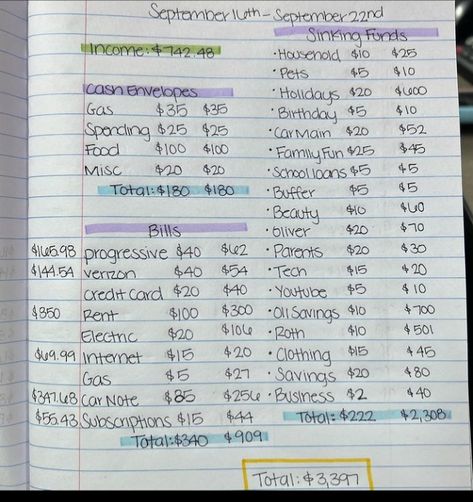 September 16th - September 22nd
Income: $742.48
Cash Envelopes
Gas $35 $35
Spending $25 $25
Food $100 $100
Misc $20 $20
Total: $180 $180
Bills
$165.98 progressive $40 $62
$144.54 verizon $40 $54
credit Card $20 $40
$850 Rent $100 $300
Electric $20 $106
$69.99 Internet $15 $20
Gas $5 $27
$347.68 Car Note $85 $256
$55.43 Subscriptions $15 $44
Total: $340 $909
Sinking Funds
• Household $10 $25
• Pets $5 $10
• Holidays $20 $600
• Birthday $5 $10
• Car Main $20 $52
• Family Fun $25 $45
• School loans $5 $5
• Buffer $5 $5
• Beauty $10 $60
• Oliver $20 $70
• Parents $20 $30
• Tech $15 $20
• Youtube $5 $10
• Oli Savings $10 $700
• Roth $10 $501
• Clothing $15 $45
• Savings $20 $80
• Business $2 $40
Total: $222 $2,308
Total: $3,397